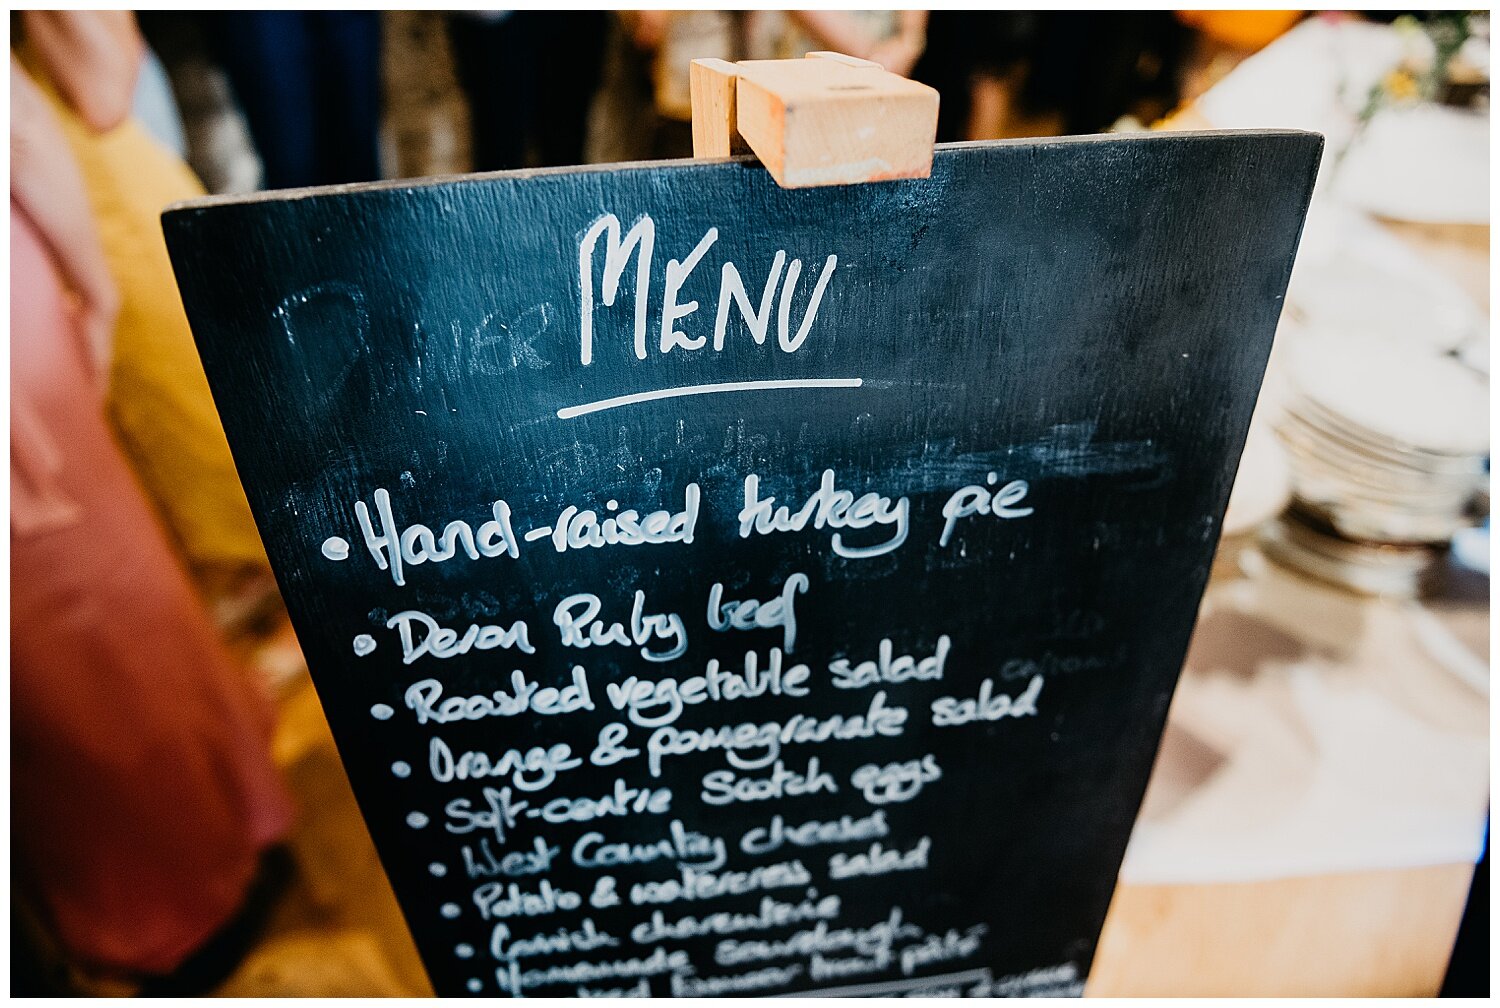 MENU
• Hand-raised turkey pie
• Devon Ruby beef
• Roasted vegetable salad
• Orange & pomegranate salad
• Soft-centre Scotch eggs
• West Country cheeses
• Potato & watercress salad
• Cornish charcuterie
• Homemade sourdough